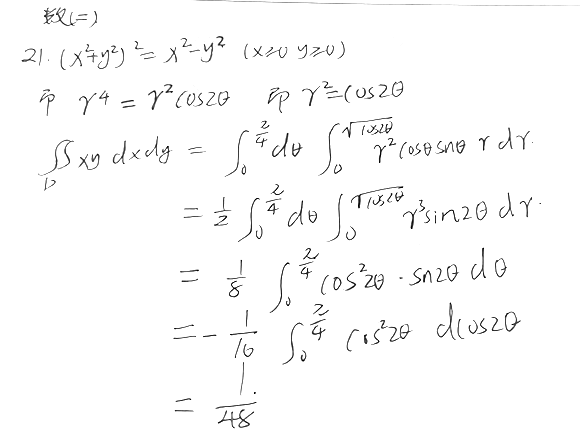 数(二)
21. (x²+y²)² = x²-y² (x≥0 y≥0)
即 r⁴ = r²cos2θ 即 r²=cos2θ
∬_D xy dxdy = ∫₀^{π/4} dθ ∫₀^{√cos2θ} r²cosθ sinθ r dr.
= 1/2 ∫₀^{π/4} dθ ∫₀^{√cos2θ} r³sin2θ dr.
= 1/8 ∫₀^{π/4} cos²2θ · sin2θ dθ
= -1/16 ∫₀^{π/4} cos²2θ dcos2θ
= 1/48